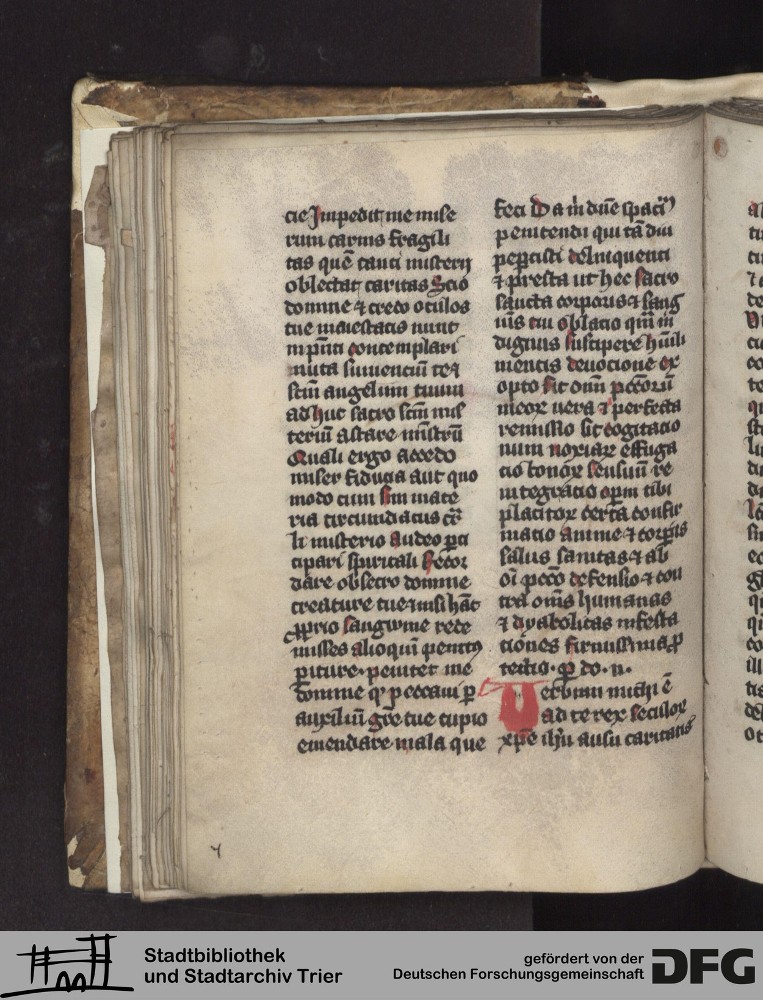 cie Impedit me mise
rum carnis fragili
tas quē tanti misterij
oblectat caritas Scio
domine ⁊ credo oculos
tue maiestatis nunc
contemplari
stm̄ angelum tuum
adhuc sacro scm̄ mis
teriū astare
Quali ergo accedo
miser fiducia aut quo
modo cum sim mate
ria circumdatus
li misterio audeo ꝑti
cipari spiritali Recor
dare obsecro domine
creature tue nisi hāc
ꝓprio sangwine rede
misses alioquī penitꝰ
ꝑiture penitet me
domine qꝫ peccaui ꝑ
auxiliū grē tue cupio
emendare mala que
feci Da m̄ dn̄e spaciū
penitendi qui tā diu
pepcisti delinquenti
⁊ presta ut hec sacro
sancta corporis ⁊ sang
uīs tui oblacio
dignus suscipere hūili
mentis deuocione ex
opto sit om̄ pccōrū
meoꝝ uera ⁊ perfecta
remissio sit cogitacio
num noxiaꝝ effuga
cio bonoꝝ sensuū re
integracio opm̄ tibi
placitoꝝ certa confir
macio anime ⁊ corpis
salus sanitas ⁊ ab
oī pccō defensio ⁊ con
tra om̄s humanas
⁊ dyabolicas infesta
ciones firmissima ꝓ
tectio · ꝑ do · n ·
Verbum michi ē
ad te rex seculoꝝ
xpē ihū ausu caritatis
Stadtbibliothek
und Stadtarchiv Trier
gefördert von der
Deutschen Forschungsgemeinschaft
DFG